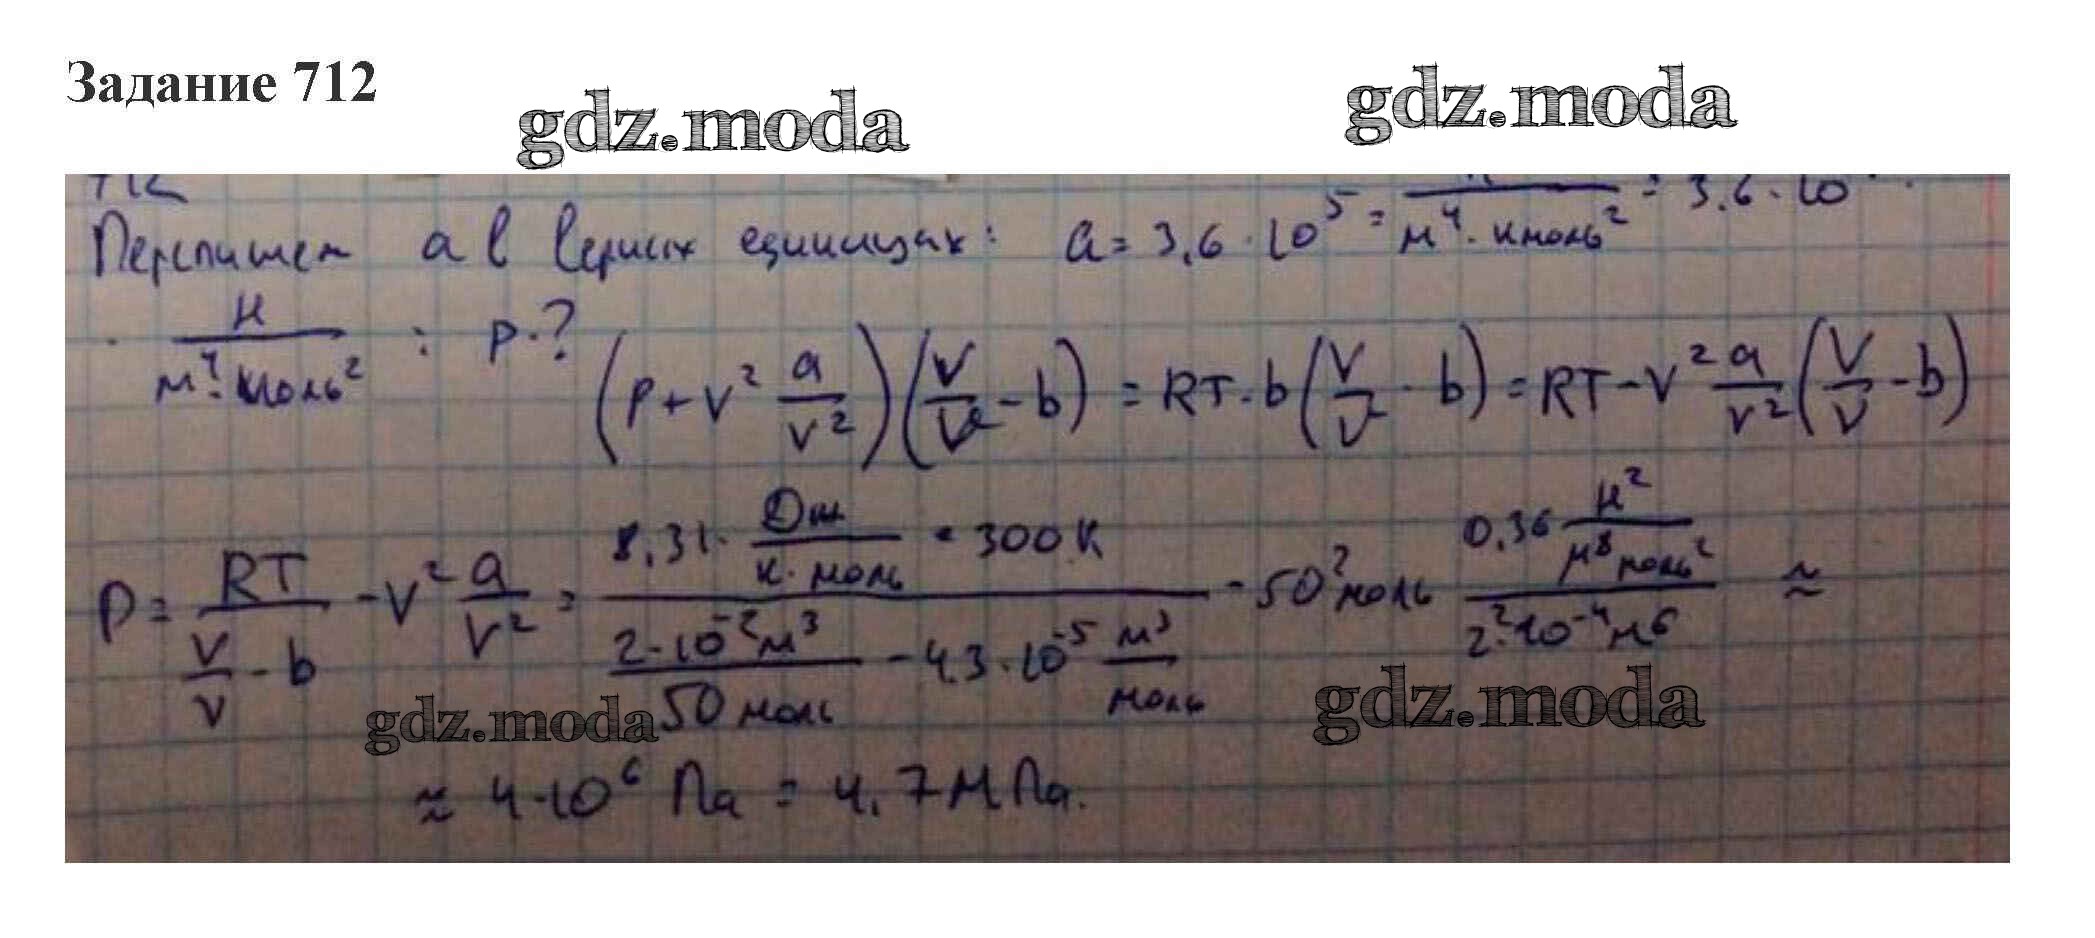 Задание 712
gdz.moda gdz.moda
712
Перепишем a в верных единицах: a = 3,6 · 10^5 = н/(м^4 · кмоль^2) = 3.6 · 10
· н/(м^4 · моль^2) : p - ? (p + ν^2 a/V^2)(V/ν - b) = RT · b(V/ν - b) = RT - ν^2 a/V^2 (V/ν - b)
p = RT/(V/ν - b) - ν^2 a/V^2 = (8,31 · Дж/(к · моль) · 300 К)/((2 · 10^-2 м^3)/(50 моль) - 4.3 · 10^-5 м^3/моль) - 50^2 моль (0.36 н^2/(м^8 моль^2))/(2^2 · 10^-4 м^6) ≈
gdz.moda gdz.moda
≈ 4 · 10^6 Па = 4,7 МПа.